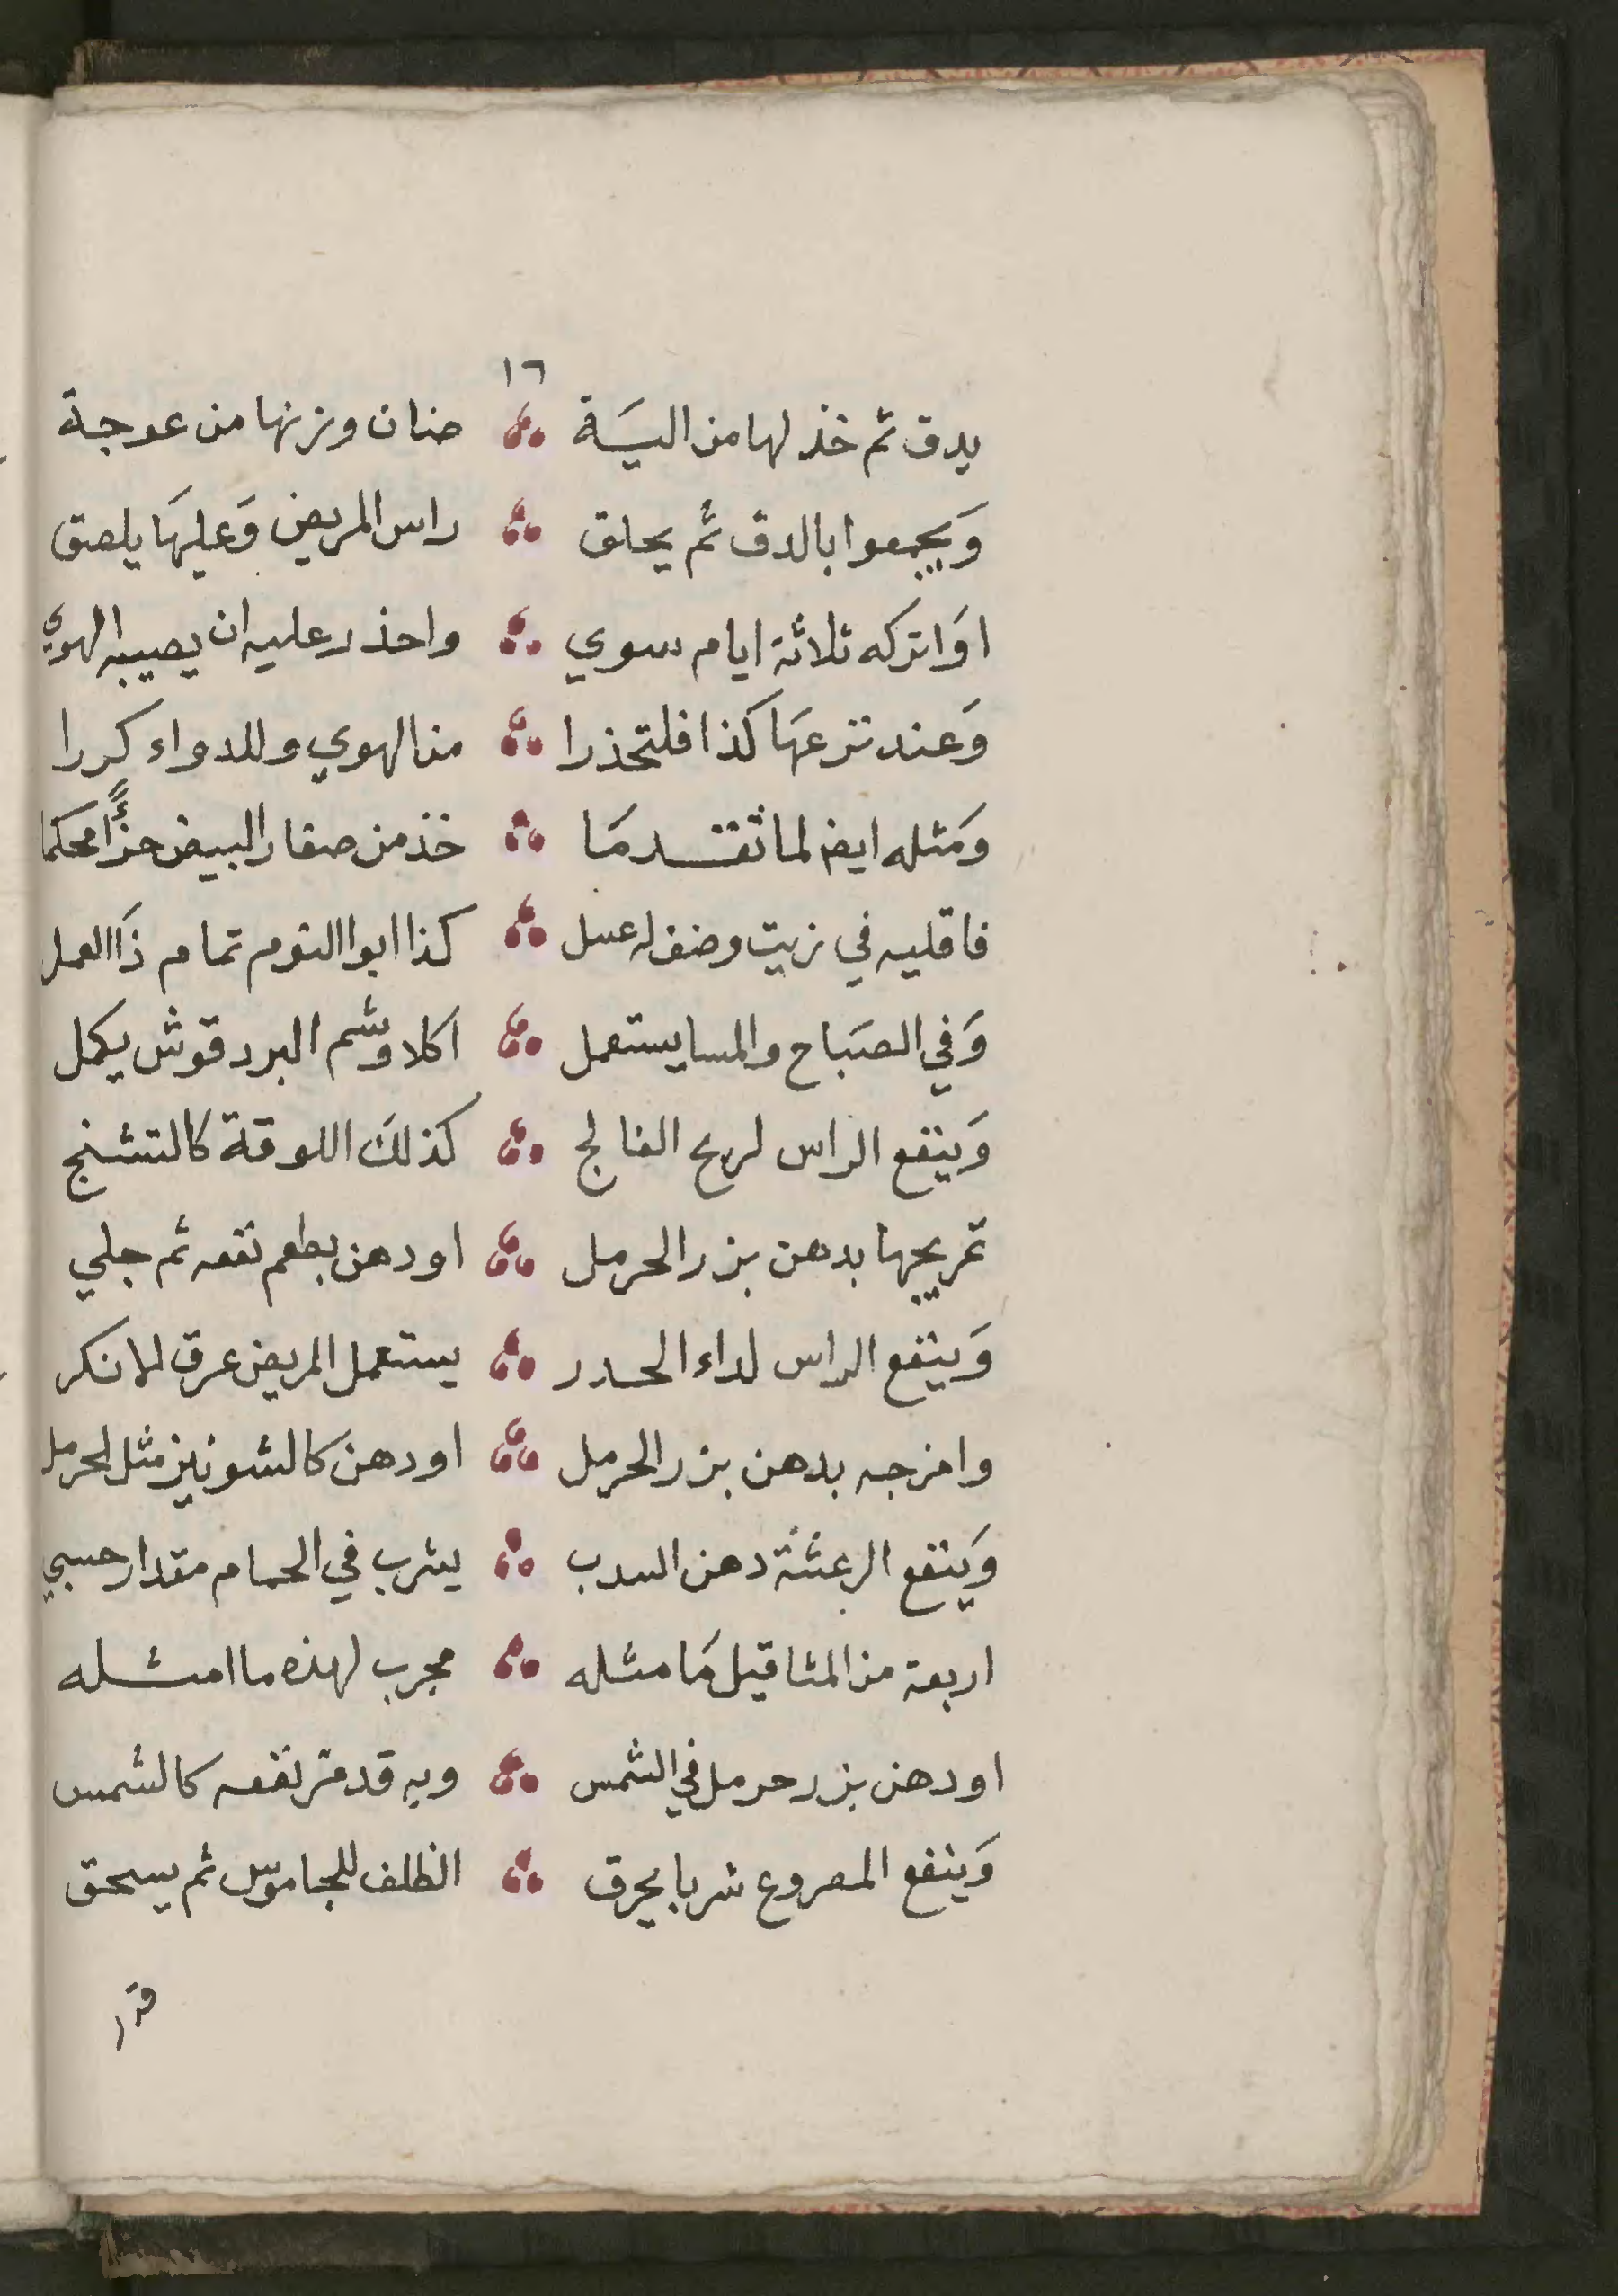 ١٦
يدق ثم خذ لها من اليسَة ضنان وزنها من عوجة
وَيجمعوا بالدق ثم يحلق راس المريض وَعليهَا يلصق
اوَاتركه ثلاثة ايام سوي واحذر عليه ان يصيبه الهوي
وَعند نزعهَا كذا فلتحذرا من الهوي وللدواء كررا
وَمثله ايض لما تقدمَا خذ من صفار البيض جزأً محكما
فاقليه في زيت وضف له عسل كذا ابوا النوم تمام ذَا العمل
وَفي الصبَاح والمسا يستعمل اكلا وشم البردقوش يكمل
وَينفع الراس لريح الفالج كذلكَ اللوقة كالتشنج
تمريجها بدهن بزر الحرمل او دهن بطم نفعه ثم جلي
وَينفع الراس لداء الحدر يستعمل المريض عرق لما نكر
وامرجه بدهن بزر الحرمل او دهن كالشونيز مثل الحرمل
وَينفع الرعشة دهن السدب يشرب في الحمام مقدار حسبي
اربعة من المثاقيل مَا مثله مجرب لهذه ما امثله
او دهن بزر حرمل في الشمس وبه قد مر نفعه كالشمس
وَينفع المصروع شربا يحرق الظلف للجاموس ثم يسحق